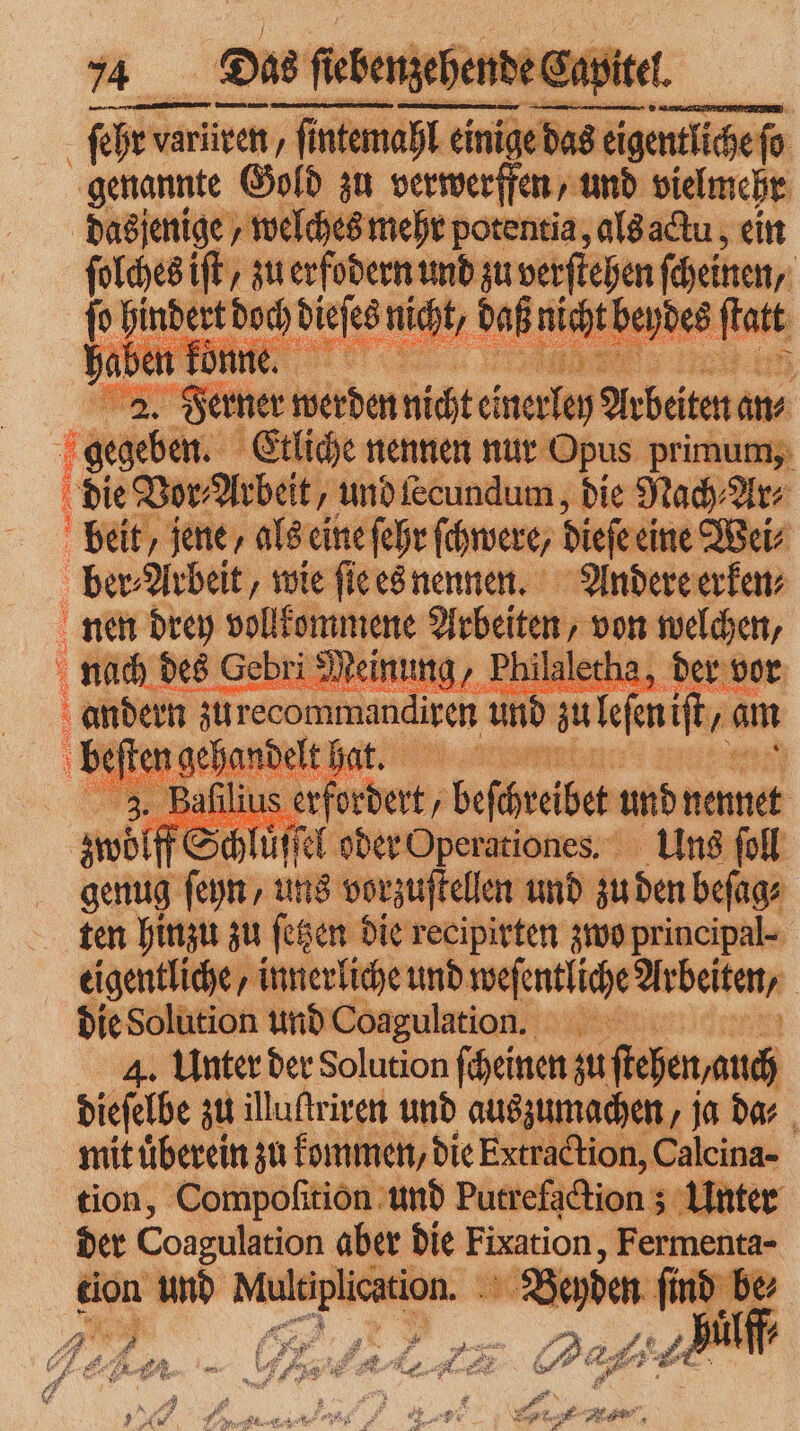 74 Das ſiebenzehende Capitel.
ſehr variiren, ſintemahl einige das eigentliche ſo
genannte Gold zu verwerffen, und vielmehr
dasjenige, welches mehr potentia, als actu, ein
ſolches iſt, zu erfodern und zu verſtehen ſcheinen,
ſo hindert doch dieſes nicht, daß nicht beydes ſtatt
haben könne.
2. Ferner werden nicht einerley Arbeiten an-
gegeben. Etliche nennen nur Opus primum,
die Vor-Arbeit, und ſecundum, die Nach-Ar-
beit, jene, als eine ſehr ſchwere, dieſe eine Wei-
ber-Arbeit, wie ſie es nennen. Andere erken-
nen drey vollkommene Arbeiten, von welchen,
nach des Gebri Meinung, Philaletha, der vor
andern zu recommandiren und zu leſen iſt, am
beſten gehandelt hat.
3. Baſilius erfordert, beſchreibet und nennet
zwölff Schlüſſel oder Operationes. Uns ſoll
genug ſeyn, uns vorzuſtellen und zu den beſag-
ten hinzu zu ſetzen die recipirten zwo principal-
eigentliche, innerliche und weſentliche Arbeiten,
die Solution und Coagulation.
4. Unter der Solution ſcheinen zu ſtehen, auch
dieſelbe zu illuſtriren und auszumachen, ja da-
mit überein zu kommen, die Extraction, Calcina-
tion, Compoſition und Putrefaction; Unter
der Coagulation aber die Fixation, Fermenta-
tion und Multiplication. Beyden ſind be-
hülff-
Geber - Philaleta